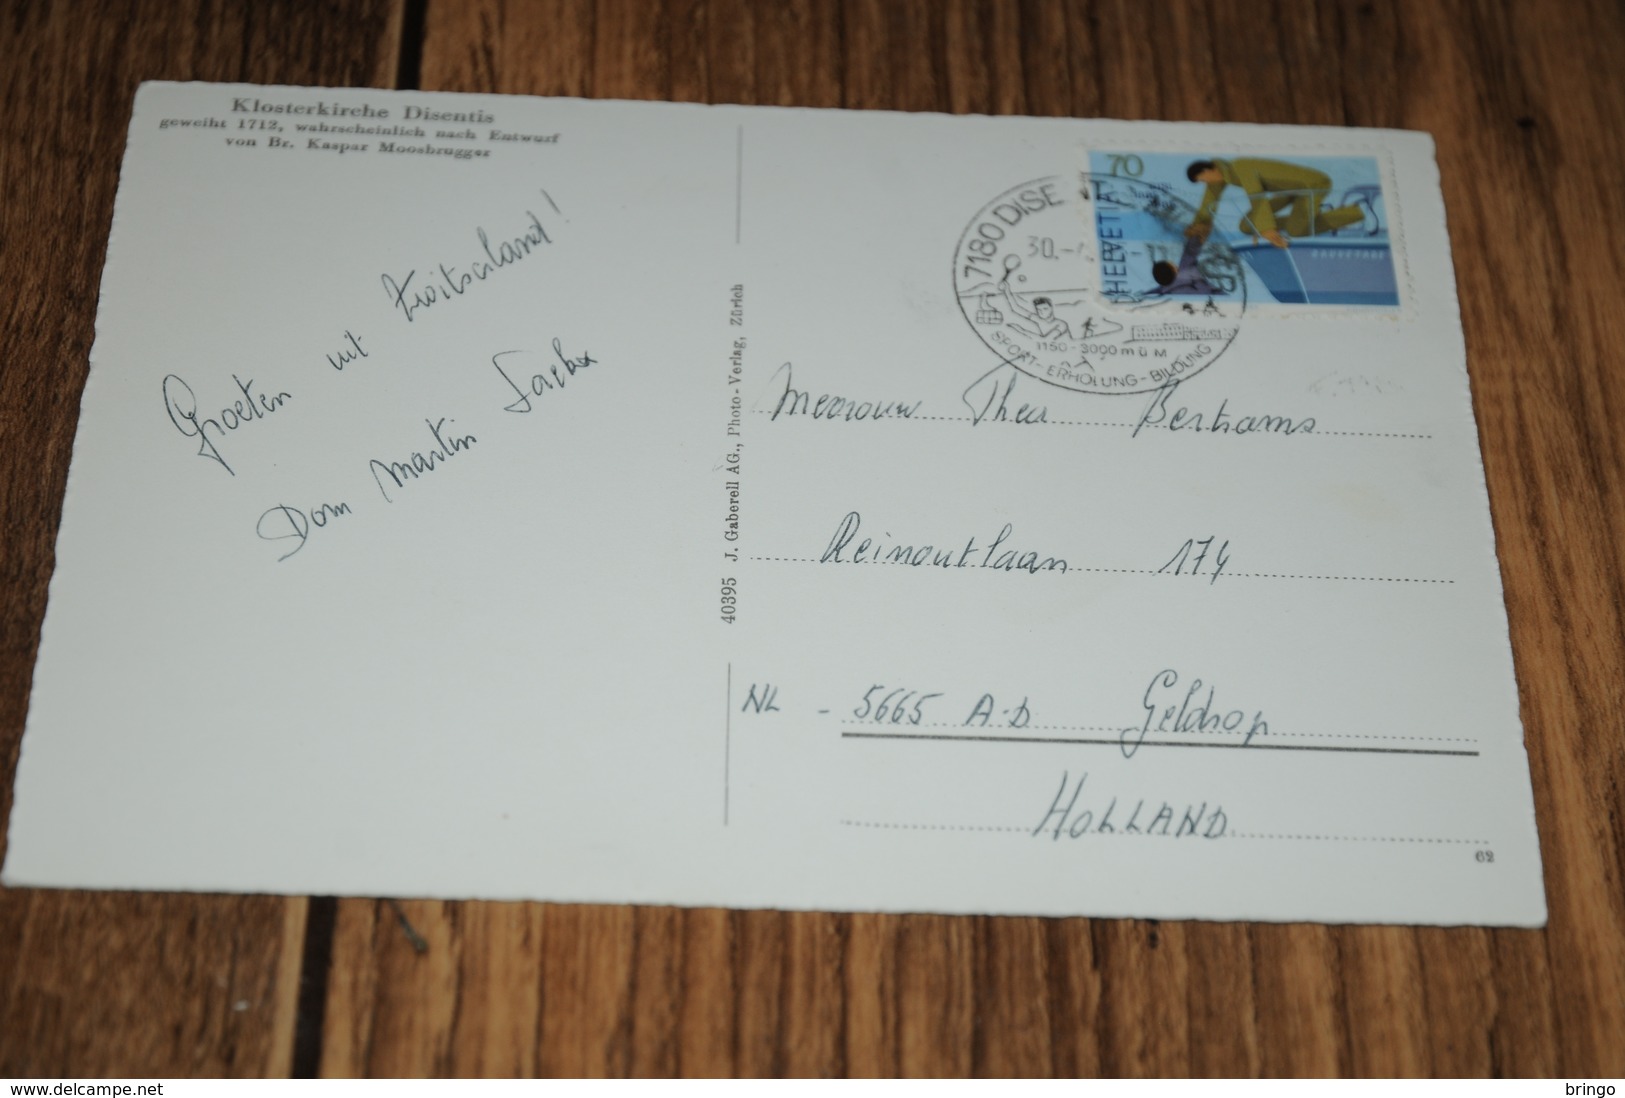 Klosterkirche Disentis
geweiht 1712, wahrscheinlich nach Entwurf
von Br. Kaspar Moosbrugger
Groeten uit
Dom Martin
40395 J. Gaberell AG., Photo-Verlag, Zürich
70
HELVETIA
SAUVETAGE
7180 DISE
30.
1150-3000 m ü M
SPORT-ERHOLUNG-BILDUNG
Mevrouw Thea Berkams
Reinoutlaan 174
NL - 5665 A.D Geldrop
HOLLAND
62
delcampe.net
bringo